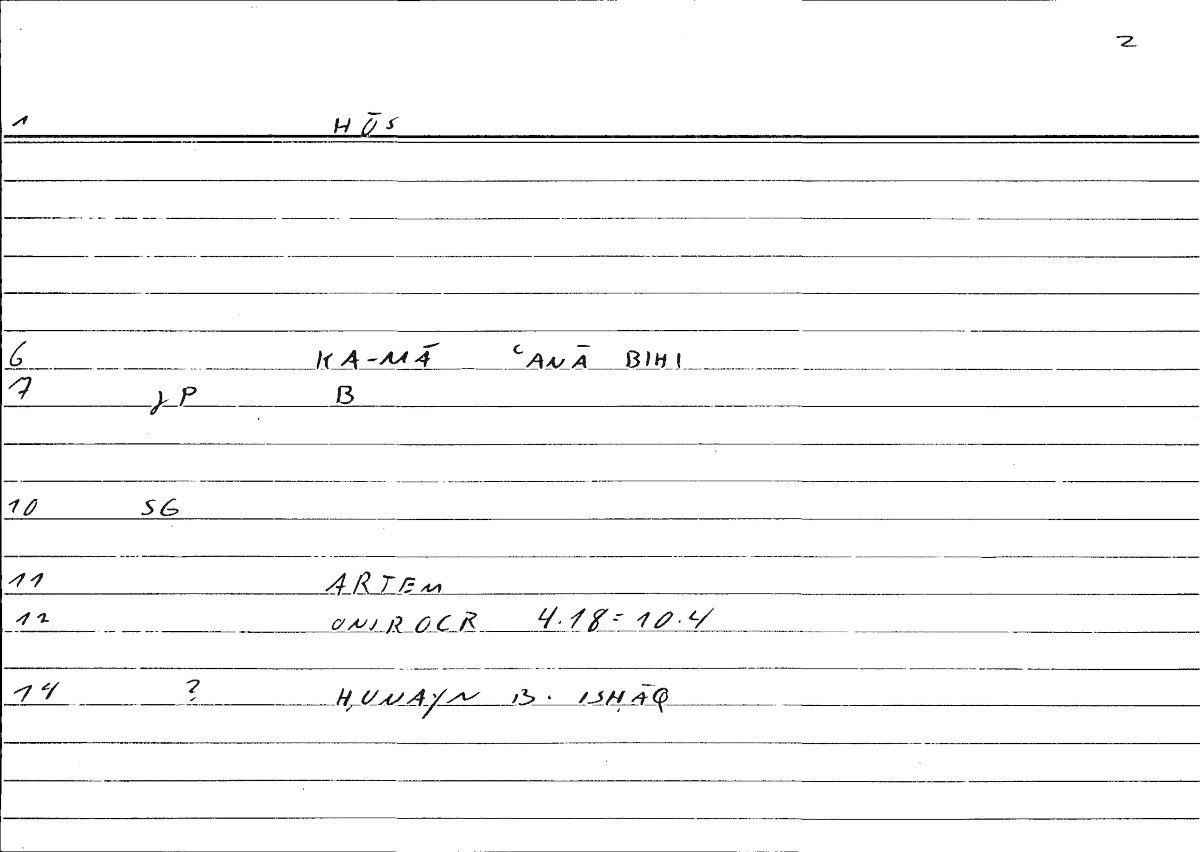 2
1 HŪS
6 KA-MĀ ʿANĀ BIHI
7 γP B
10 SG
11 ARTEM
12 ONIROCR 4.18=10.4
14 ? ḤUNAYN B. ISḤĀQ